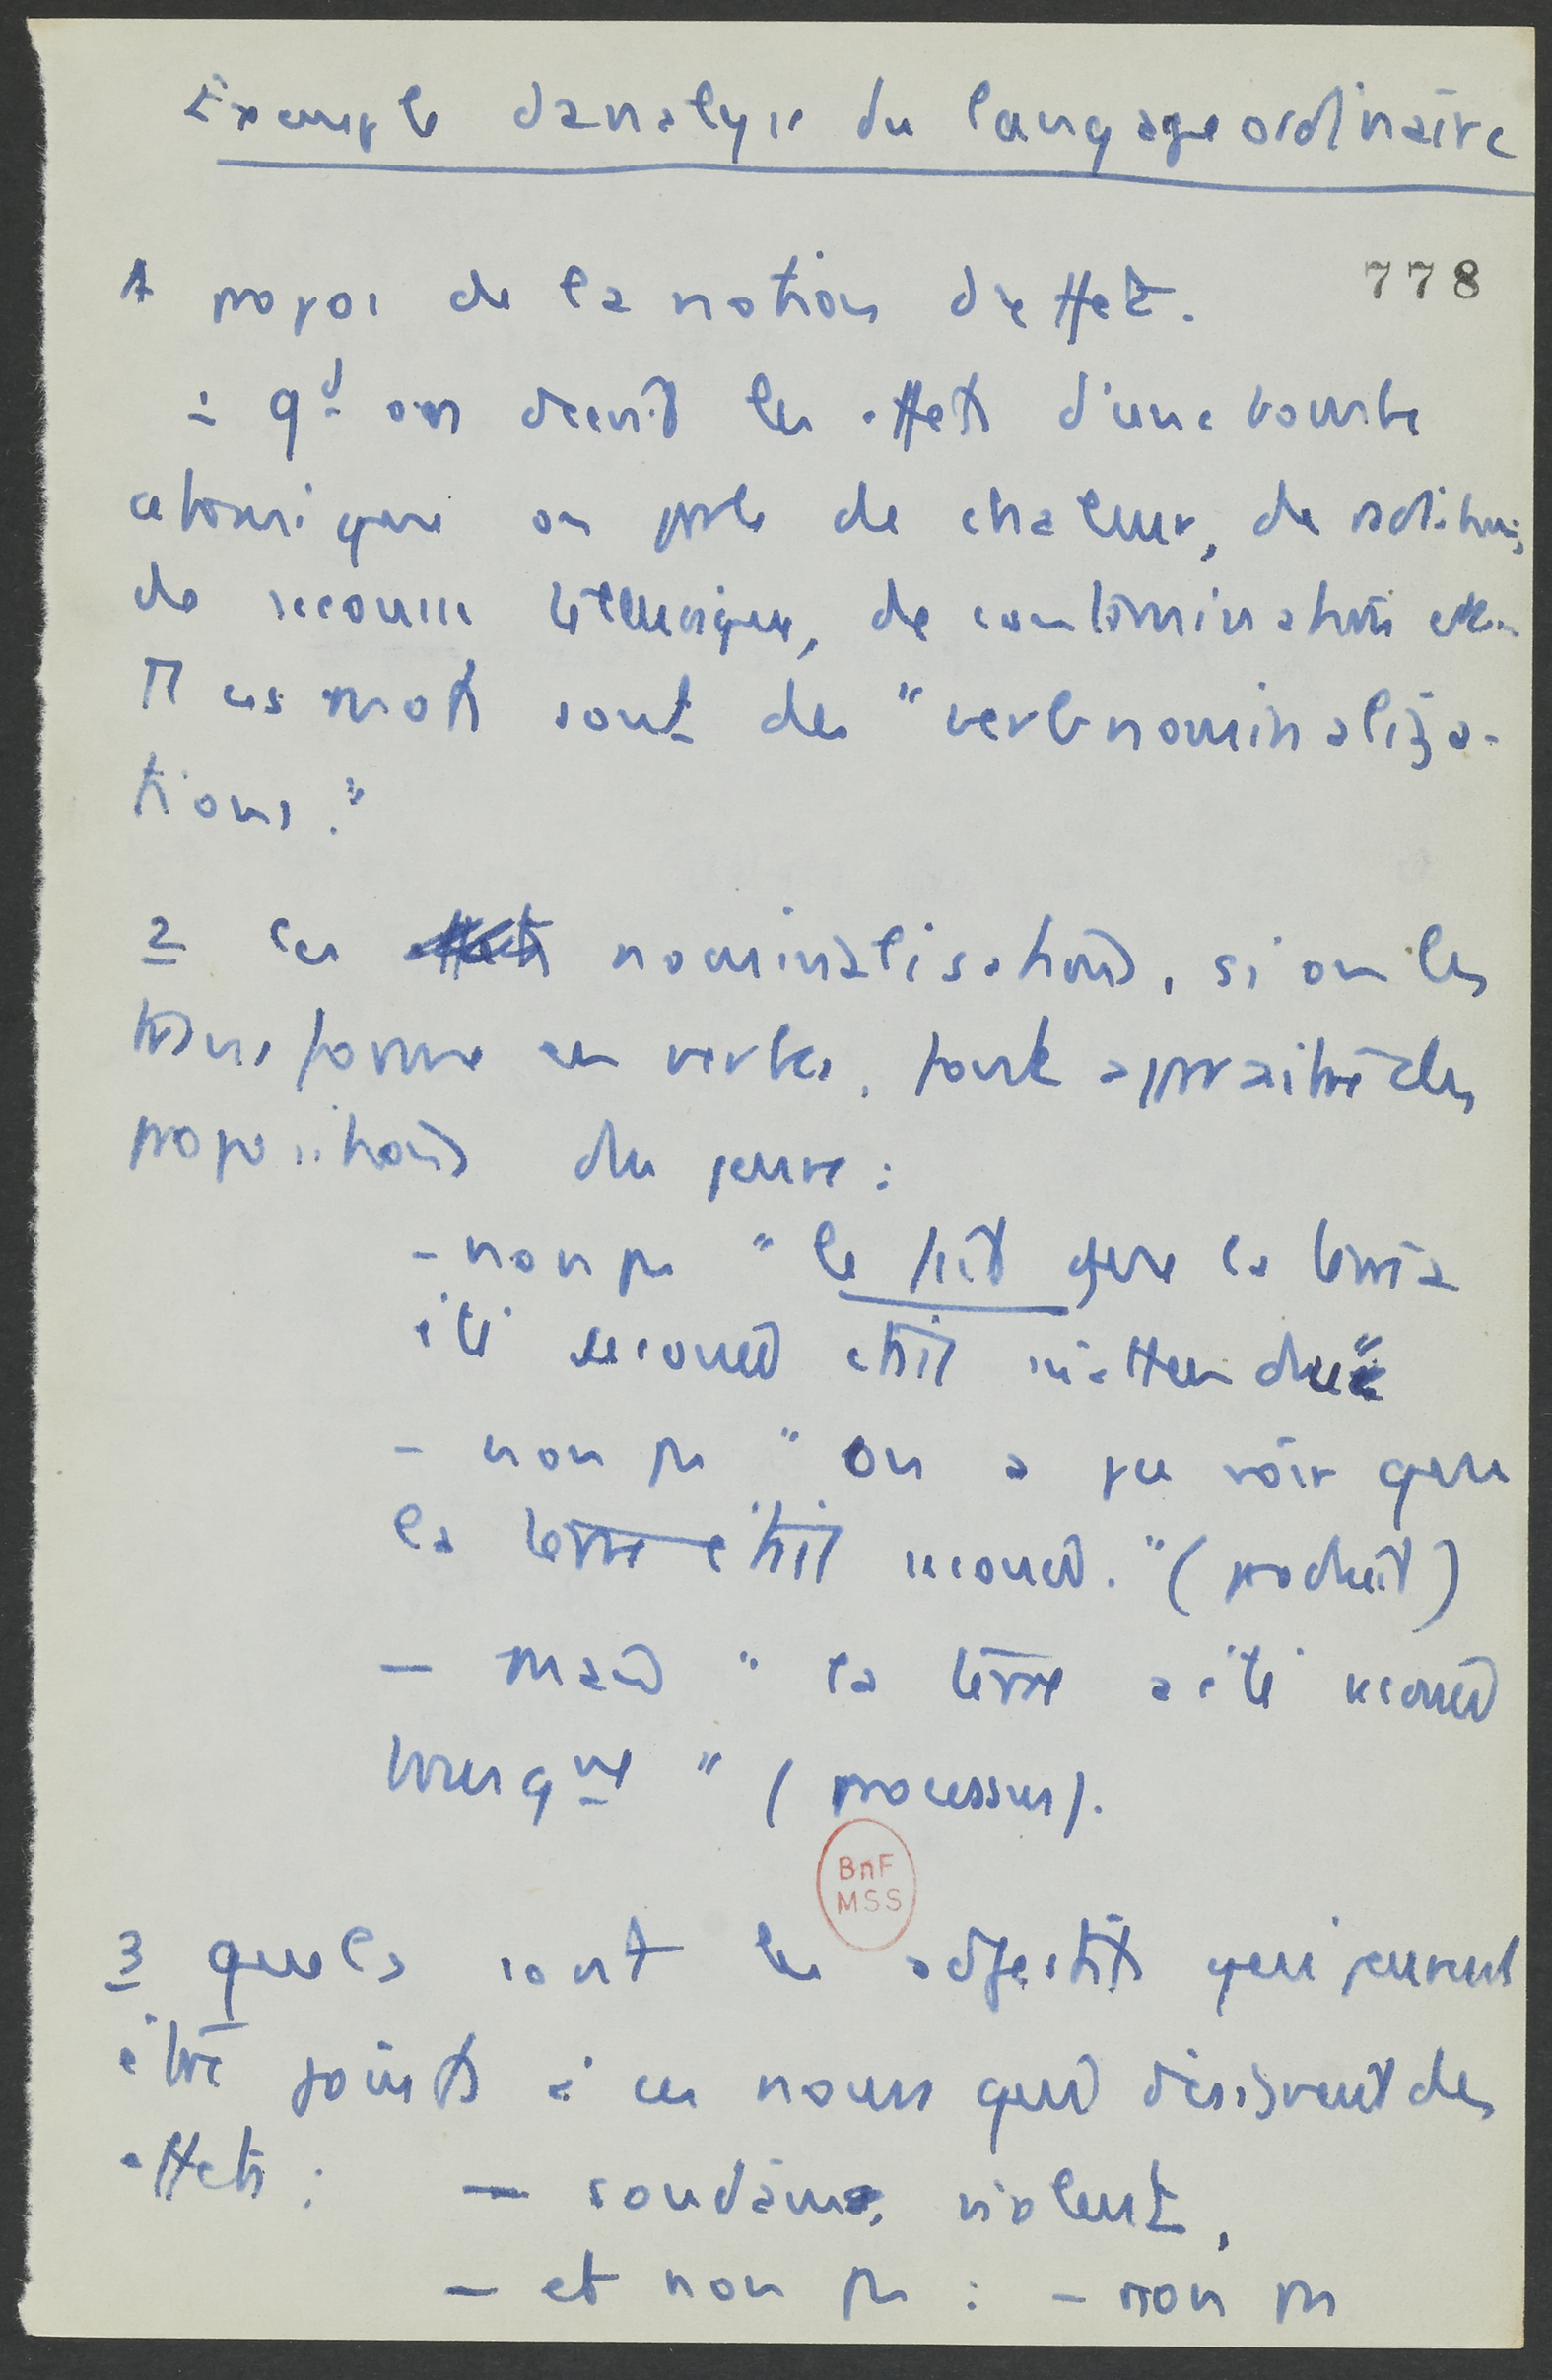 Exemple d'analyse du langage ordinaire
778
A propos de la notion d'effet.
1 qd on décrit les effets d'une bombe
atomique on parle de chaleur, de radiation,
de secousse tellurique, de contamination etc.
Ts ces mots sont des "verb nominaliza-
tions."
2 Ces nominalisations, si on les
transforme en verbes, font apparaître des
propositions du genre :
- non pas "le fait que la terre a
été secouée était inattendu"
- non pas "on a pu voir que
la terre était secouée." (produit)
- mais "la terre a été secouée
brusqut" (processus).
BnF
MSS
3 quels sont les adjectifs qui peuvent
être joints à ces noms qui désignent des
effets : - soudain, violent,
- et non pas : - non pas